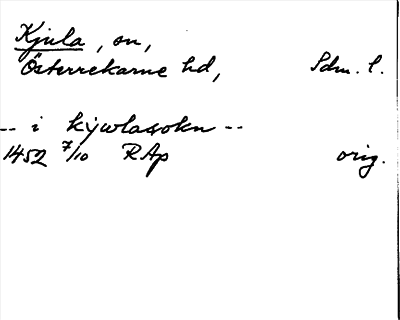 Kjula, sn,
Österrekarne hd, Sdm. l.
-- i kywlasokn --
1452 7/10 RAp orig.